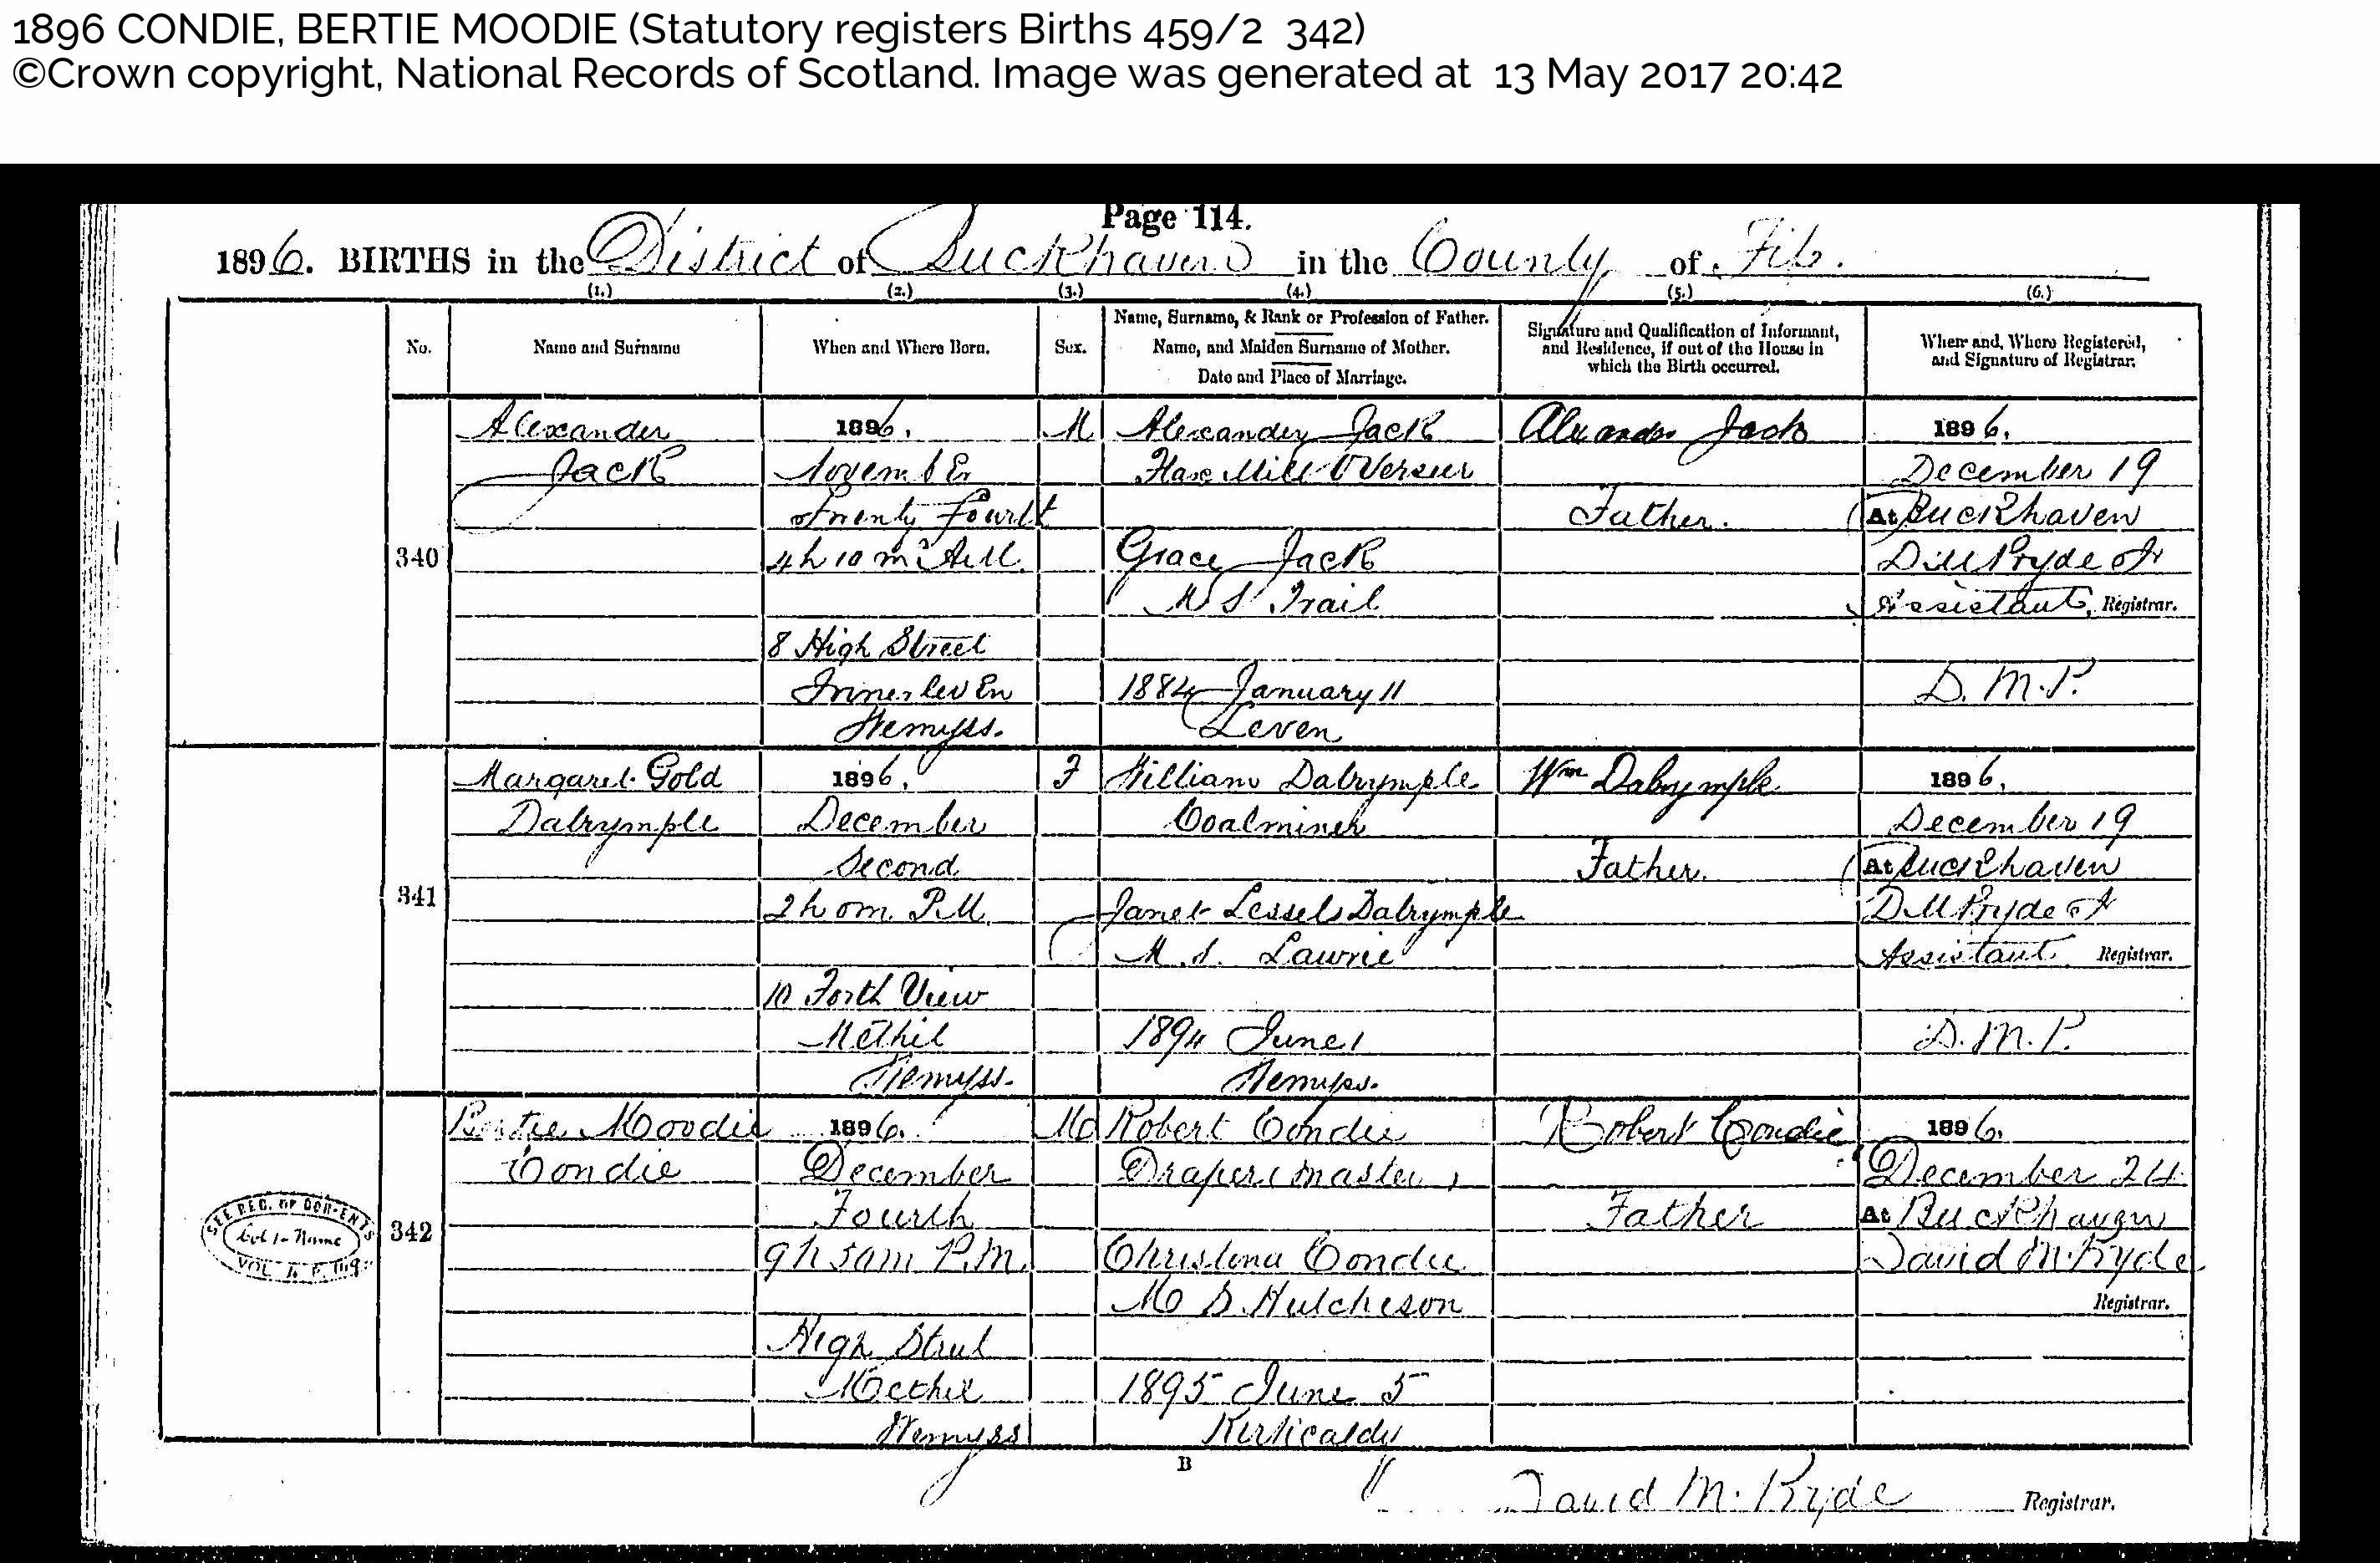 1896 CONDIE, BERTIE MOODIE (Statutory registers Births 459/2 342)
©Crown copyright, National Records of Scotland. Image was generated at 13 May 2017 20:42
Page 114.
1896. BIRTHS in the District of Buckhaven in the County of Fife.
(1.) (2.) (3.) (4.) (5.) (6.)
No.
Name and Surname
When and Where Born.
Sex.
Name, Surname, & Rank or Profession of Father.
Name, and Maiden Surname of Mother.
Date and Place of Marriage.
Signature and Qualification of Informant,
and Residence, if out of the House in
which the Birth occurred.
When and, Where Registered,
and Signature of Registrar.
340
Alexander
Jack
1896.
November
Twenty Fourth
4h 10m A.M.
8 High Street
Innerleven
Wemyss.
M
Alexander Jack
Flax Mill Overseer
Grace Jack
M S Trail
1884 January 11
Leven
Alexander Jack
Father.
1896.
December 19
At Buckhaven
D M Pryde Jr
Assistant, Registrar.
D. M. P.
341
Margaret Gold
Dalrymple
1896.
December
Second
2h 0m. P.M.
10 Forth View
Methil
Wemyss.
F
William Dalrymple
Coalminer
Janet Lessels Dalrymple
M.S. Lawrie
1894 June 1
Wemyss.
Wm Dalrymple
Father.
1896.
December 19
At Buckhaven
D M Pryde Jr
Assistant Registrar.
D. M. P.
SEE REG. OF COR. ENTS
Col 1 - Name
VOL
342
Bertie Moodie
Condie
1896.
December
Fourth
9h 50m P.M.
High Street
Methil
Wemyss
M
Robert Condie
Draper (master)
Christina Condie
M S. Hutcheson
1895 June 5
Kirkcaldy
Robert Condie
Father
1896.
December 24
At Buckhaven
David M. Pryde
Registrar.
B
David M. Pryde Registrar.